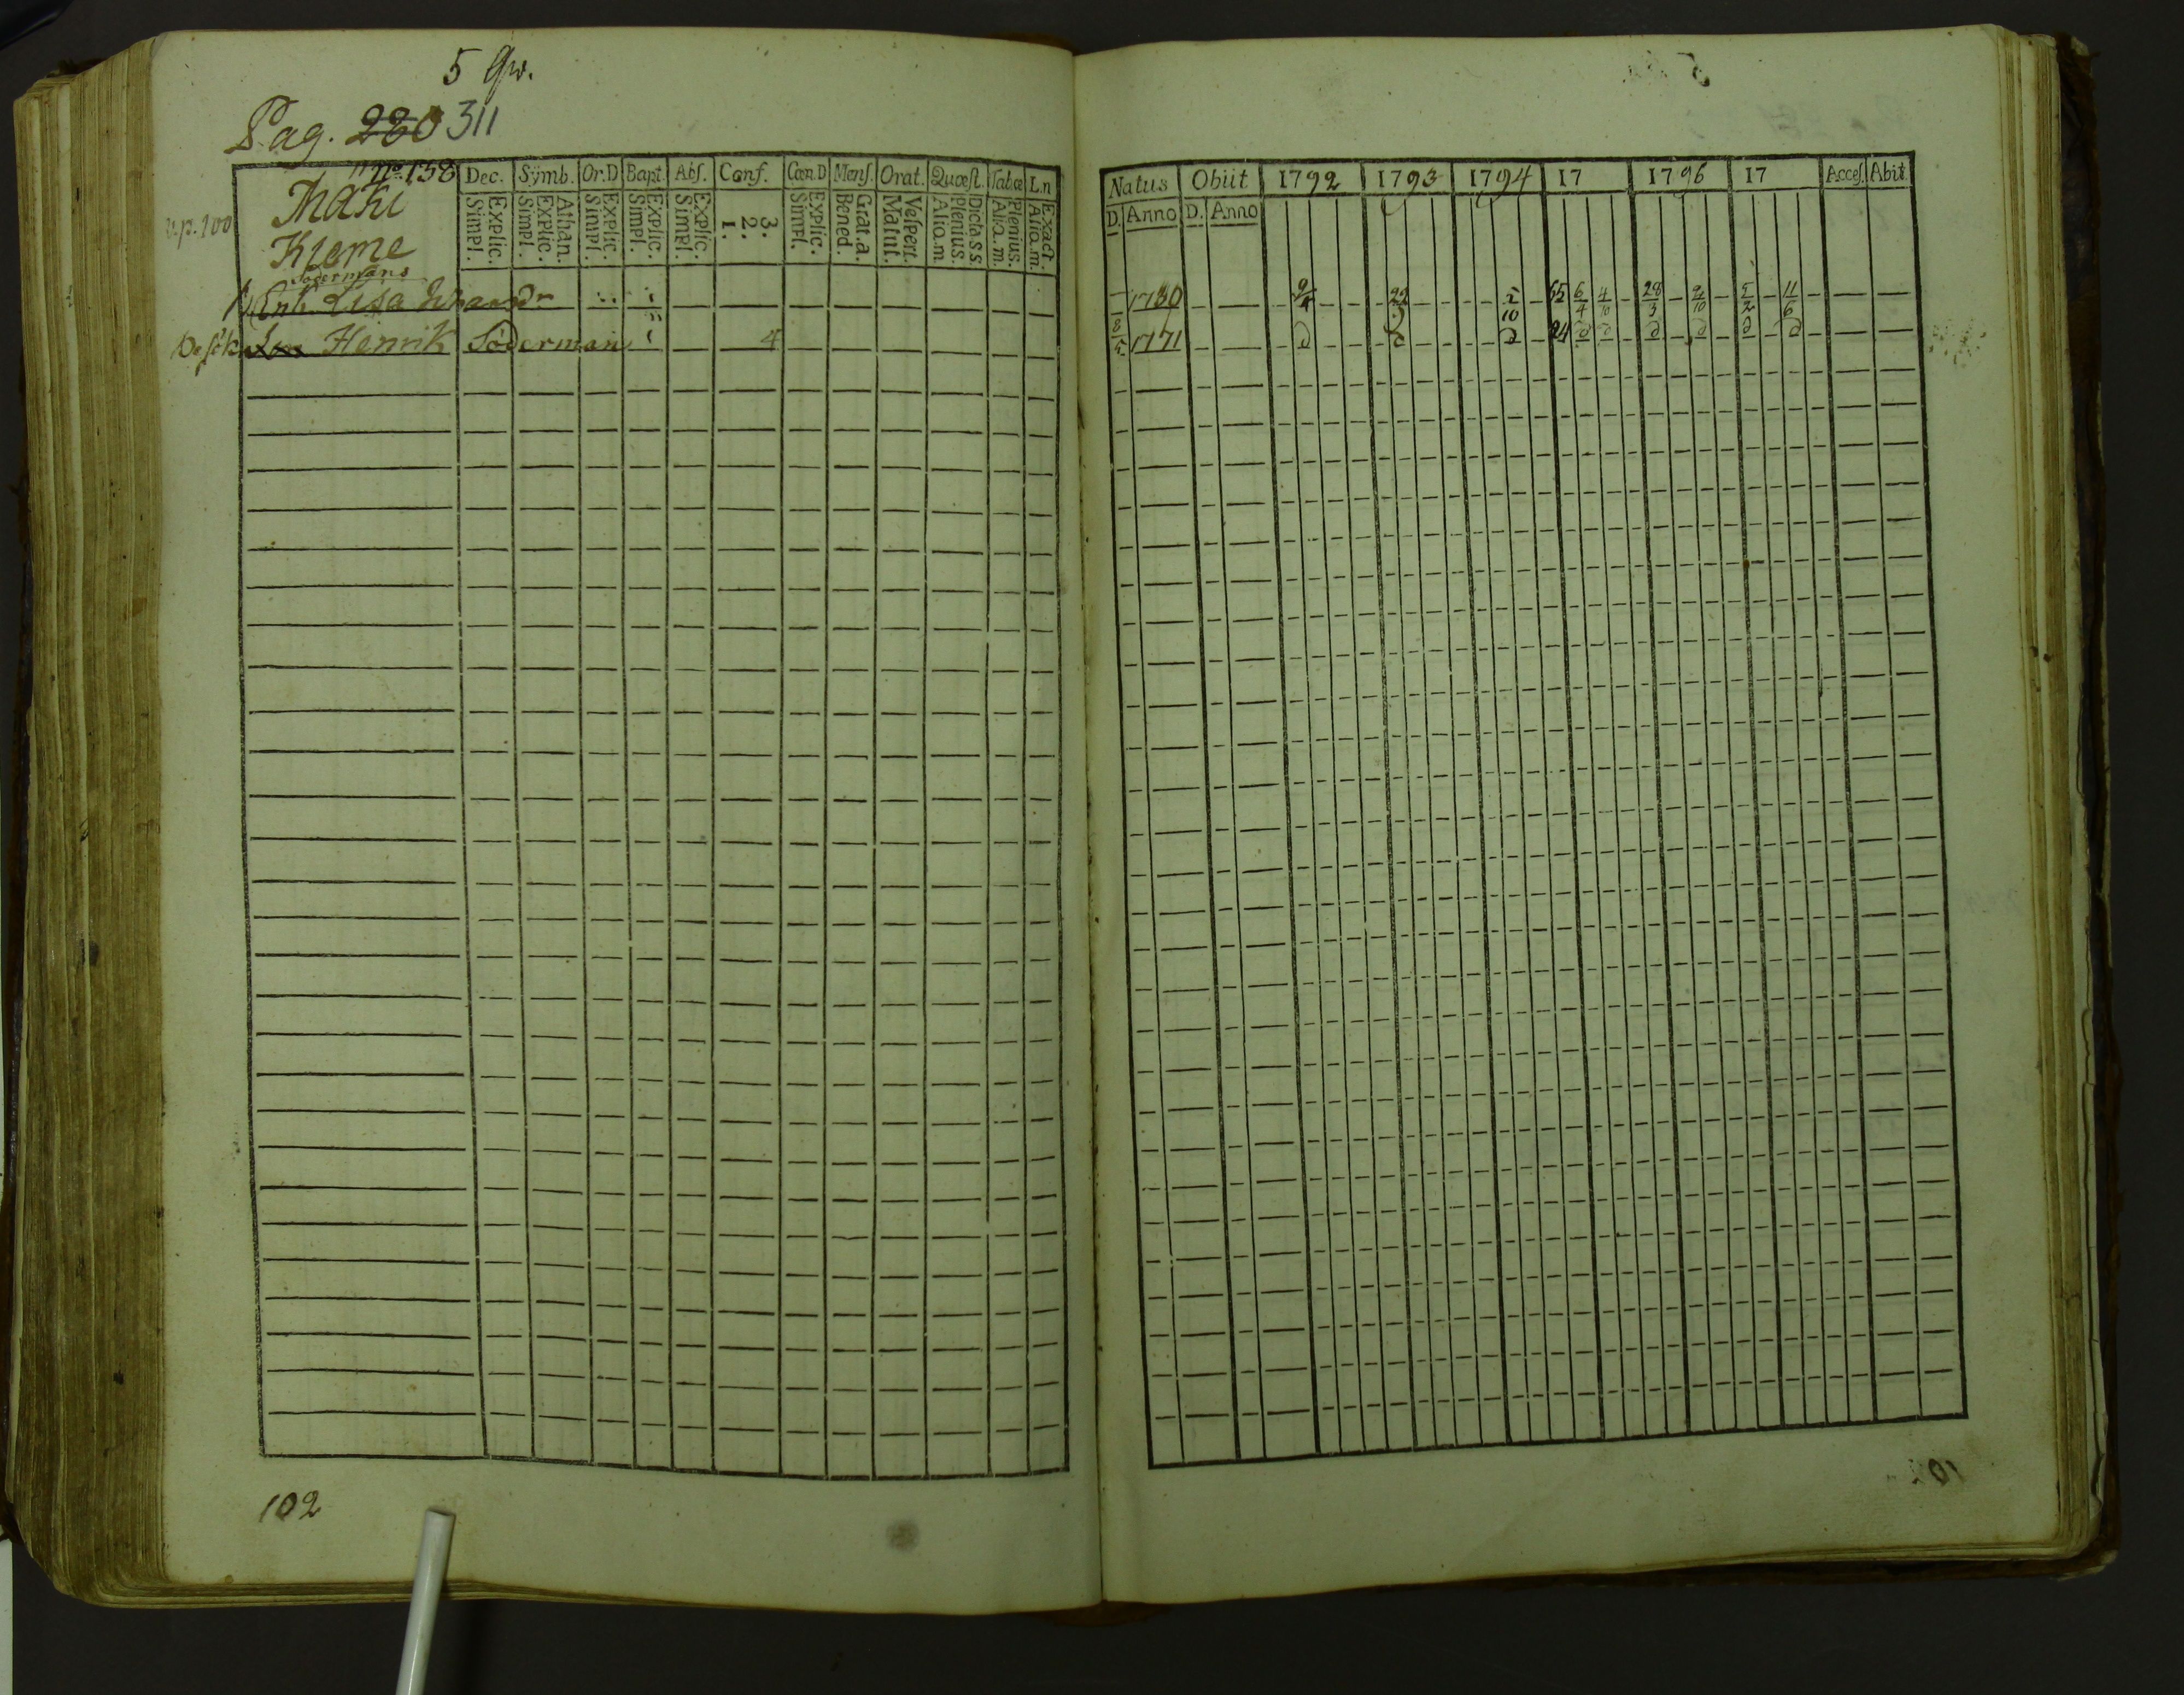 5 Qv.
Pag. 280 311
No 158
Mäki
v.p. 100
Kjeme
Södermans
1) Enk. Lisa
Henrik Söderman 4
Dec. Symb. Or.D Bapt. Abs. Conf. Cœn.D Mens. Orat. Quæst. Tabœ L.n
Explic. Simpl. Athan. Explic. Simpl. Explic. Simpl. Explic. Simpl. Explic. Simpl. 3. 2. 1. Explic. Simpl. Grat.a. Bened. Vespert. Matut. Dicta s s. Plenius. Alio.m. Plenius. Alia.m. Exact. Alio.m.
102
Natus Obiit 1792 1793 1794 17 1796 17 Acces. Abit.
D. Anno D. Anno
1730 9/4 5/10 55 6/4 4/10 28/3 9/10 5/2 11/6
8/5 1771 d d d 24 d d d d d d